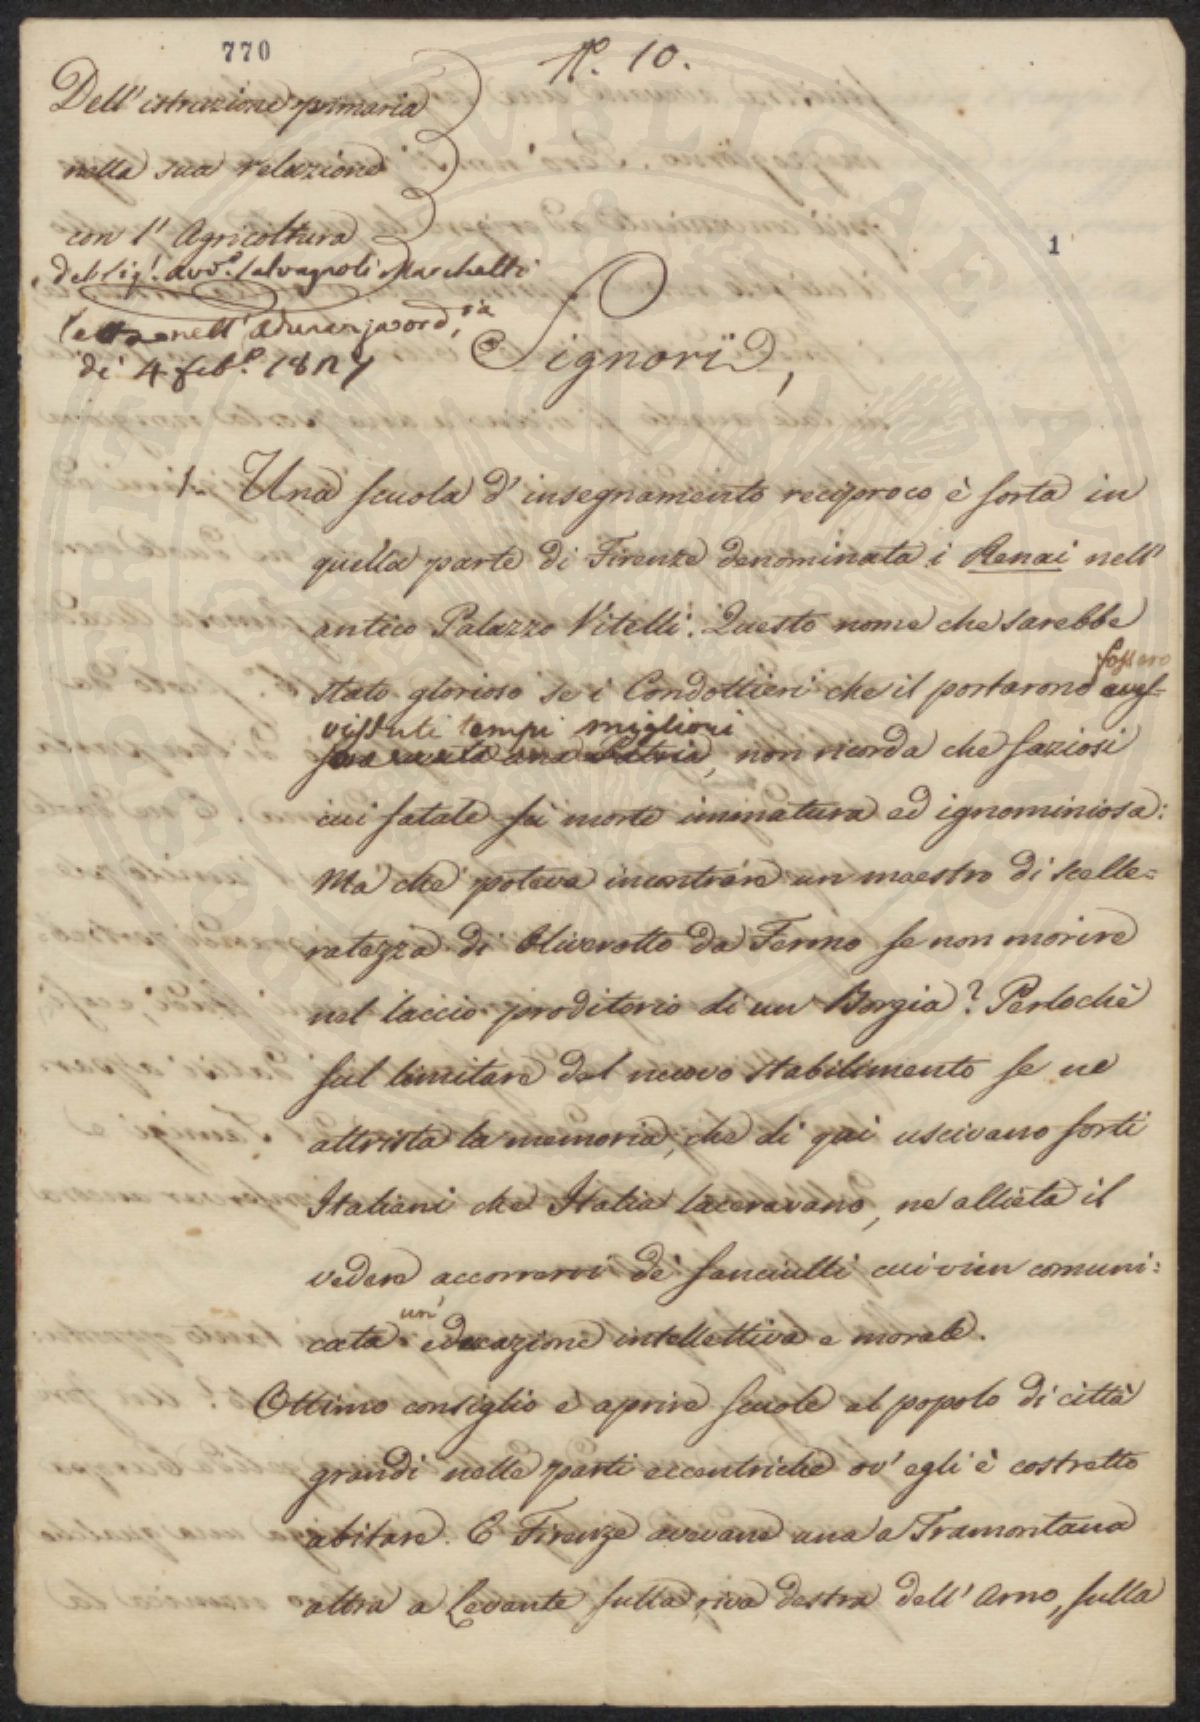 770
N. 10.
Dell' istruzione primaria
nella sua relazione
con l' Agricoltura
del Sig.r Avv.o Salvagnoli Marchetti
letta nell' Adunanza ord.ria
de' 4 feb.o 18
1
Signori,
1. Una scuola d' insegnamento reciproco è sorta in
quella parte di Firenze denominata i Renai nell'
antico Palazzo Vitelli. Questo nome che sarebbe
stato glorioso se i Condottieri che il portarono
fossero
vissuti tempi migliori
, non ricorda che faziosi
cui fatale fù morte immatura ed ignominiosa:
Ma che poteva incontrare un maestro di scelle=
ratezza di Oliverotto da Fermo se non morire
nel laccio proditorio di un Borgia? Perlochè
sul limitare del nuovo stabilimento se ne
attrista la memoria, che di qui uscivano forti
Italiani che Italia laceravano, ne allieta il
vedere accorrervi de' fanciulli cui vien comuni=
cata un' educazione intellettiva e morale.
Ottimo consiglio è aprire scuole al popolo di città
grandi nelle parti eccentriche ov' egli è costretto
abitare. E Firenze avevane una a Tramontana
altra a Levante sulla riva destra dell' Arno, sulla